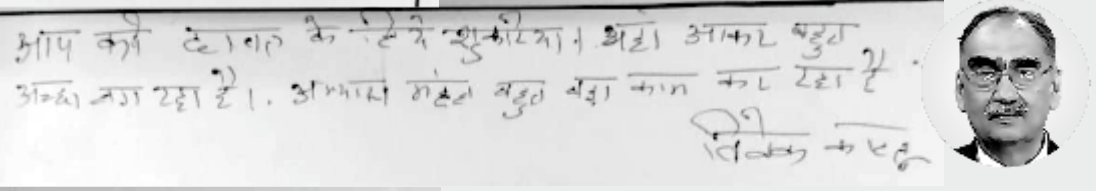 आप की दावत के लिये शुक्रिया। यहां आकर बहुत
अच्छा लग रहा है।. अभ्यास मंडल बहुत बड़ा काम कर रहा है.
विवेक